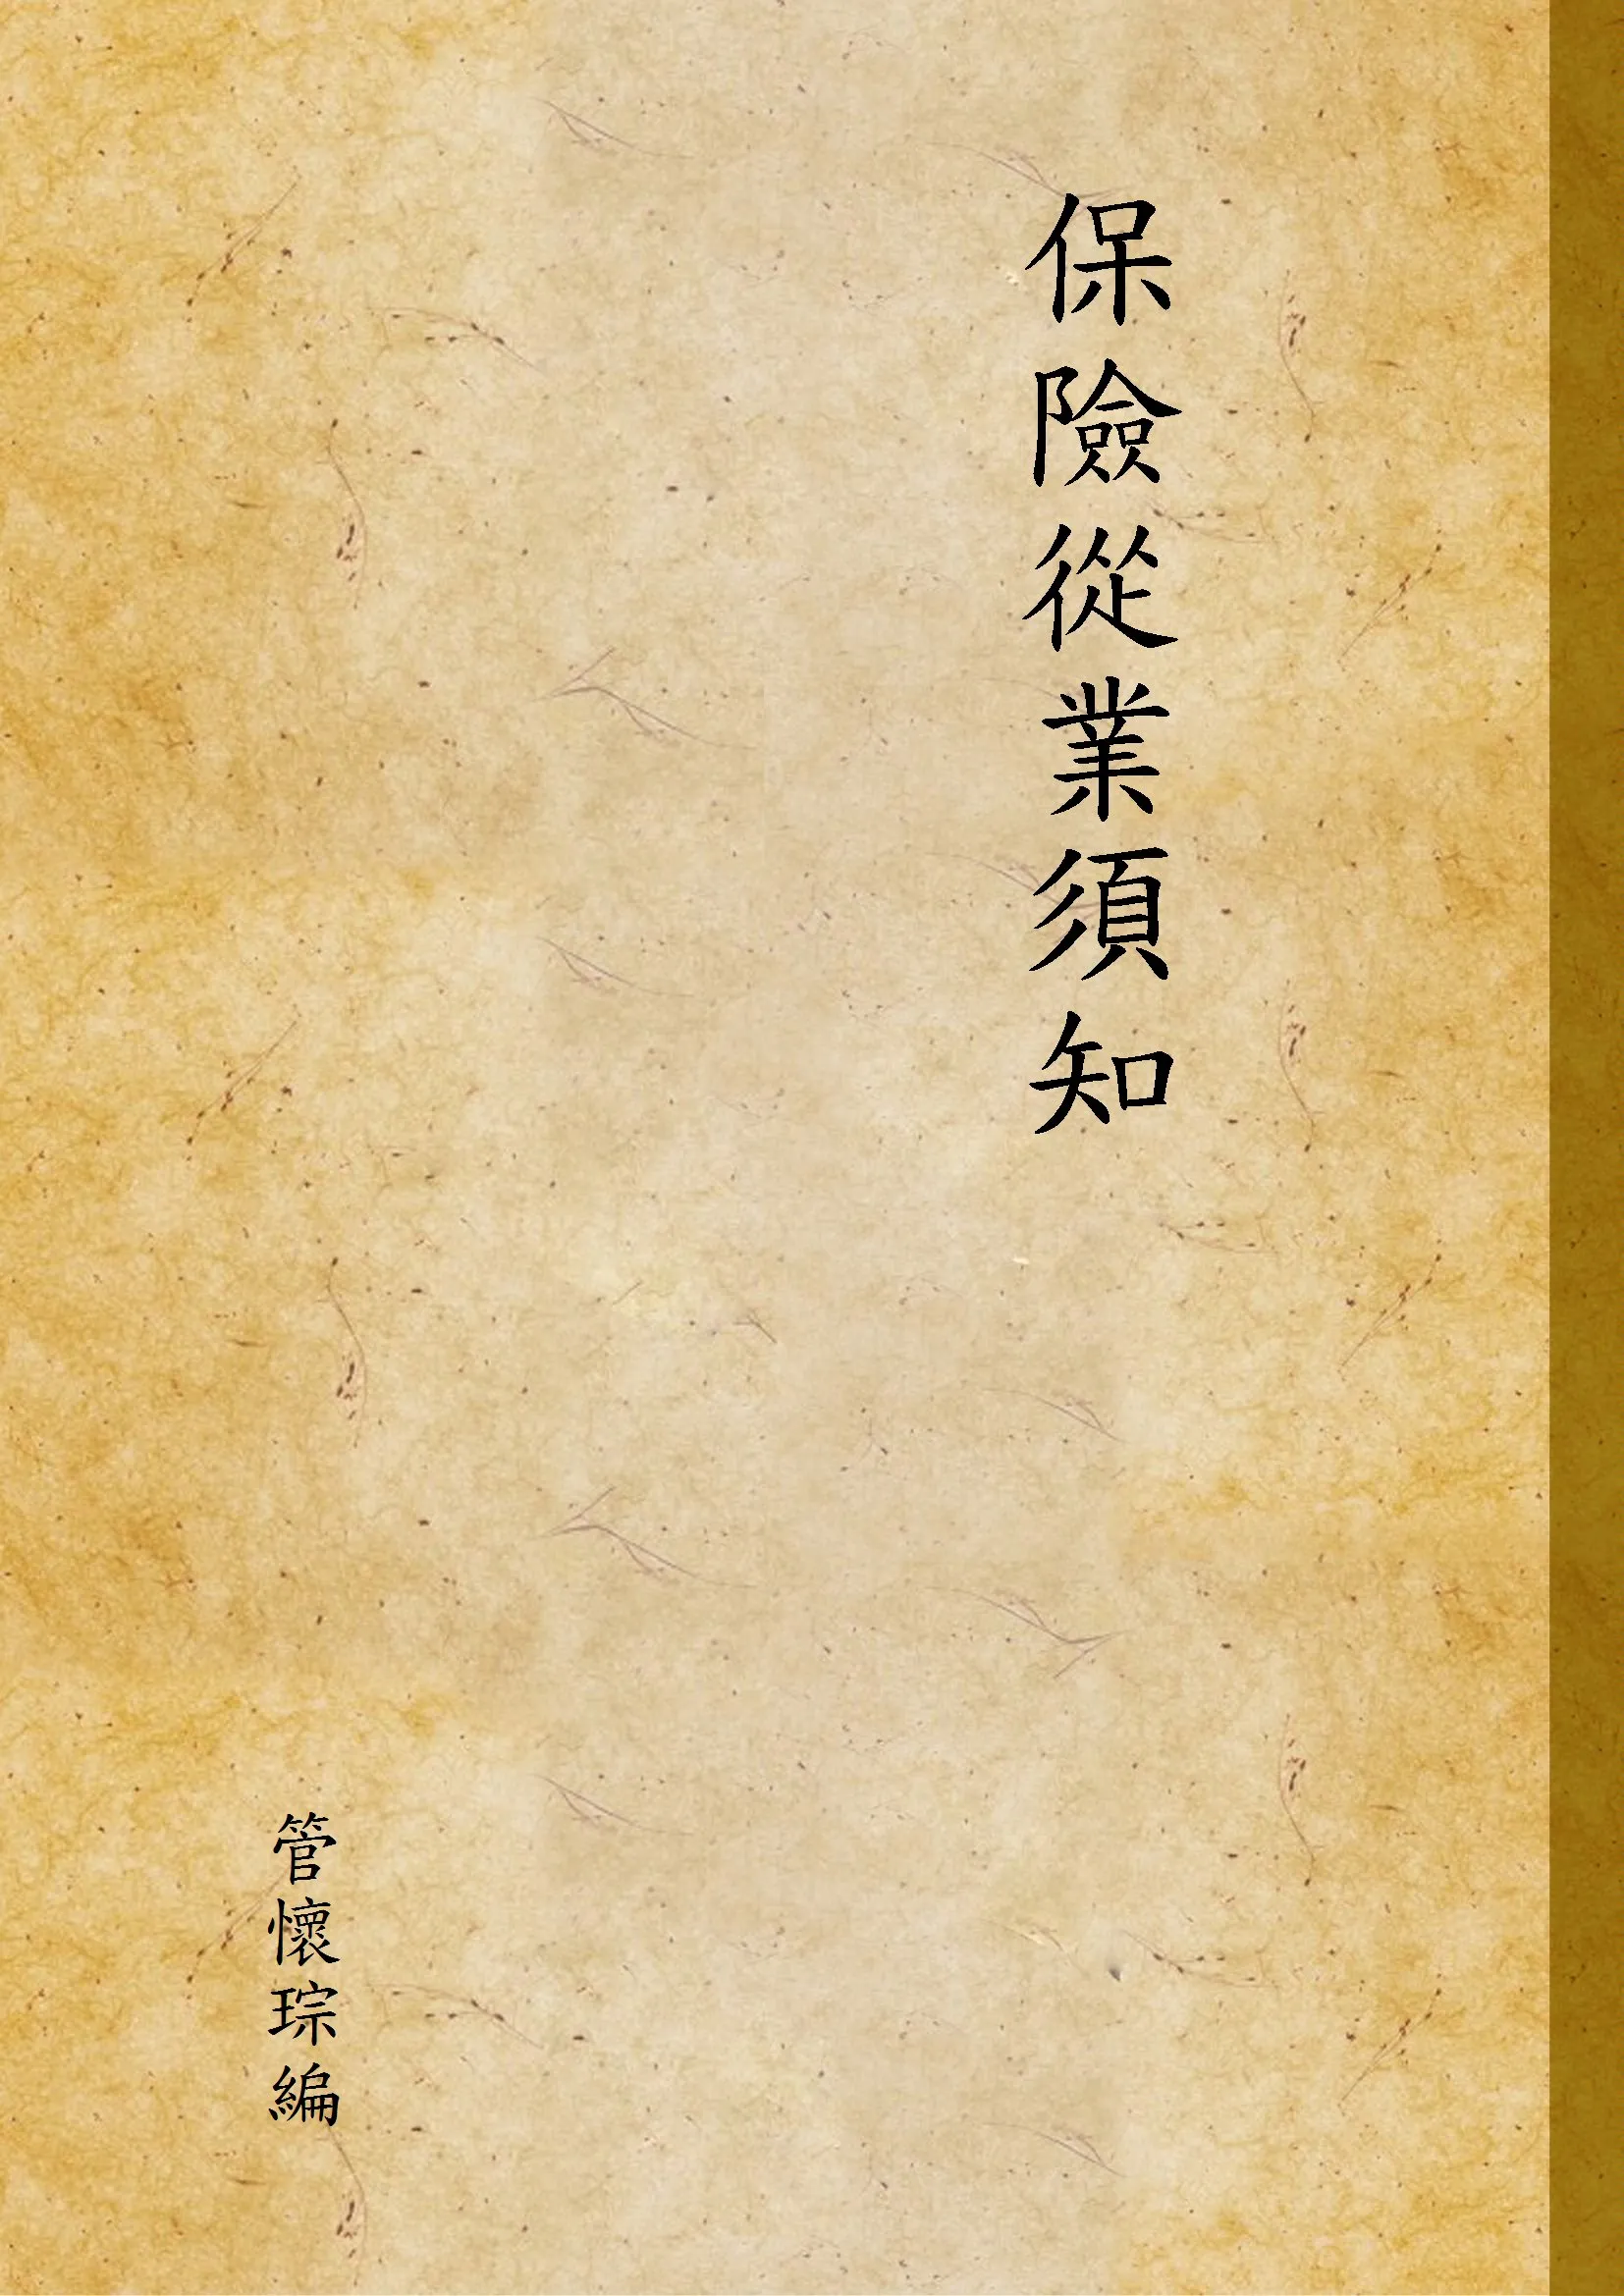 保險從業須知
管懷琮編